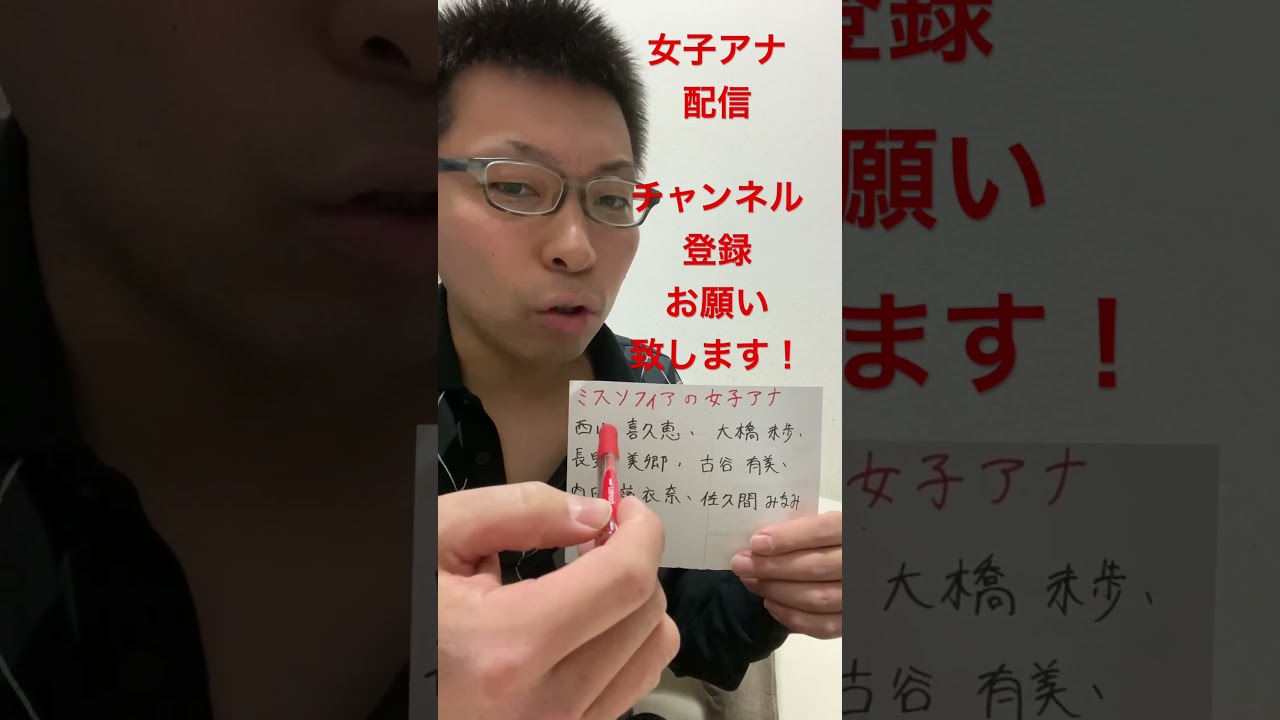 女子アナ
配信
チャンネル
登録
お願い
致します！
ミスソフィアの女子アナ
西山 喜久恵、大橋 未歩、
長野 美郷、古谷 有美、
衣奈、佐久間 みなみ
登録
願い
ます！
女子アナ
大橋 未歩、
古谷 有美、